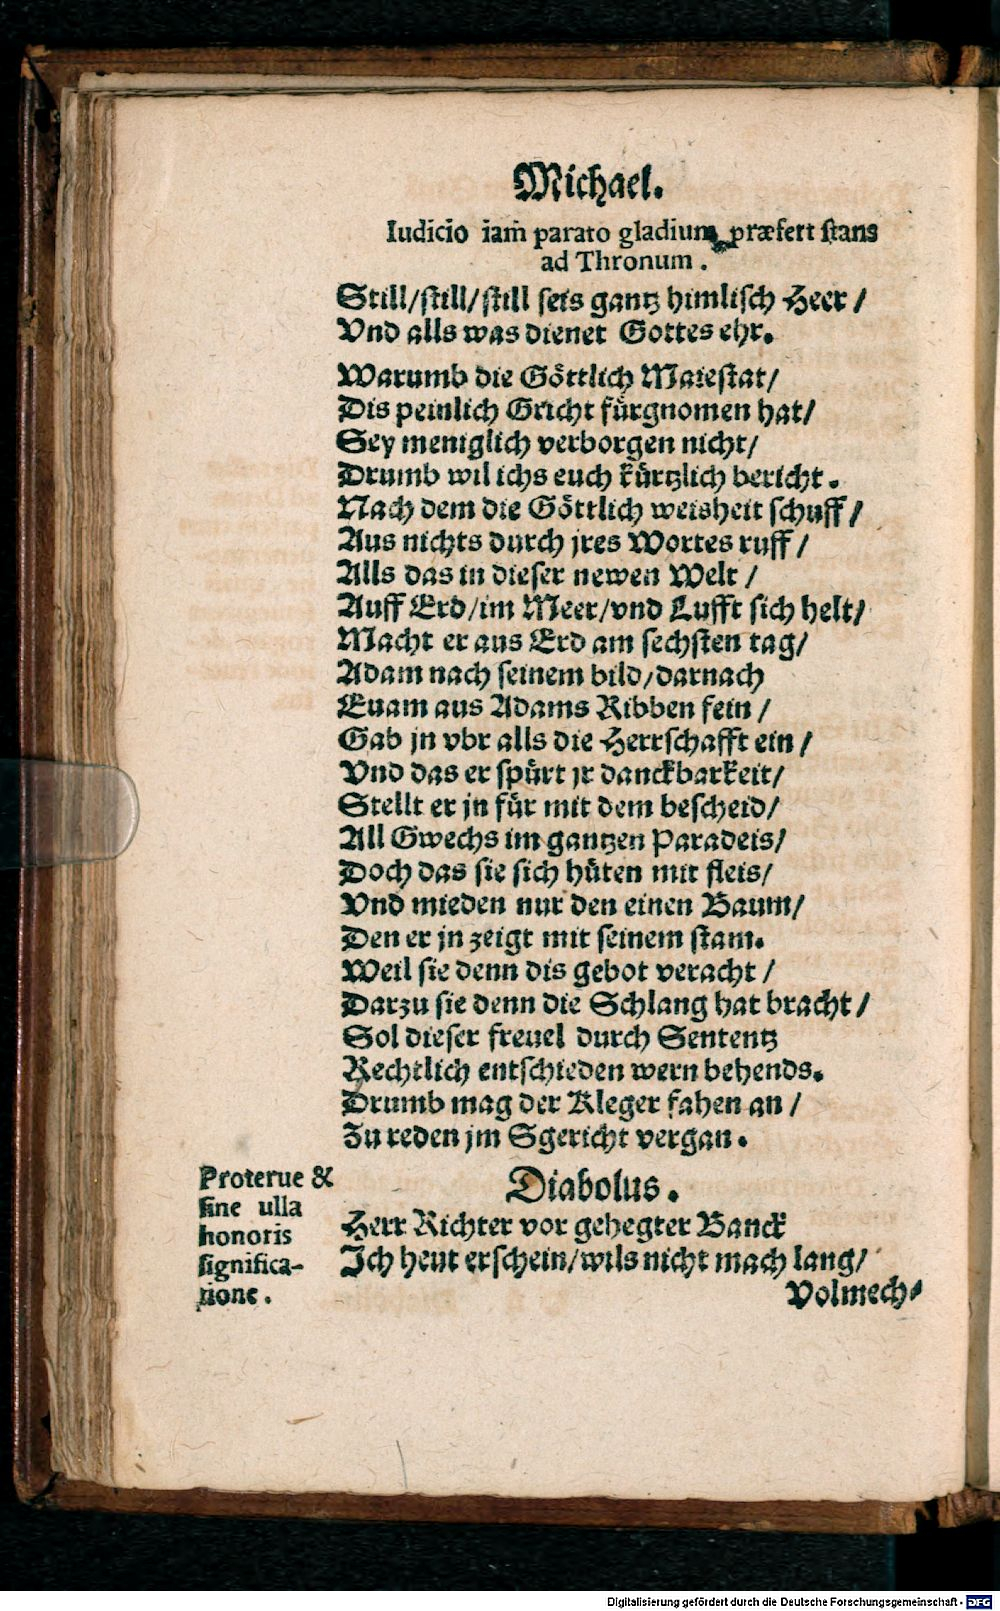 Michael.
Iudicio iam̃ parato gladium præfert ſtans
ad Thronum.
Still/ſtill/ſtill ſeis gantz himliſch Heer/
Vnd alls was dienet Gottes ehr.
Warumb die Göttlich Maieſtat/
Dis peinlich Gricht fürgnomen hat/
Sey meniglich verborgen nicht/
Drumb wil ichs euch kürtzlich bericht.
Nach dem die Göttlich weisheit ſchuff/
Aus nichts durch jres Wortes ruff/
Alls das in dieſer newen Welt/
Auff Erd/im Meer/vnd Lufft ſich helt/
Macht er aus Erd am ſechſten tag/
Adam nach ſeinem bild/darnach
Euam aus Adams Ribben fein/
Gab jn vbr alls die Herrſchafft ein/
Vnd das er ſpürt jr danckbarkeit/
Stellt er jn für mit dem beſcheid/
All Gwechs im gantzen Paradeis/
Doch das ſie ſich hüten mit fleis/
Vnd mieden nur den einen Baum/
Den er jn zeigt mit ſeinem ſtam.
Weil ſie denn dis gebot veracht/
Darzu ſie denn die Schlang hat bracht/
Sol dieſer freuel durch Sententz
Rechtlich entſchieden wern behends.
Drumb mag der Kleger fahen an/
Zu reden jm Sgericht vergan.
Diabolus.
Proterue &
ſine ulla
honoris
ſignifica-
tione.
Herr Richter vor gehegter Banck
Ich heut erſchein/wils nicht mach lang/
Volmech⸗
Digitalisierung gefördert durch die Deutsche Forschungsgemeinschaft - DFG